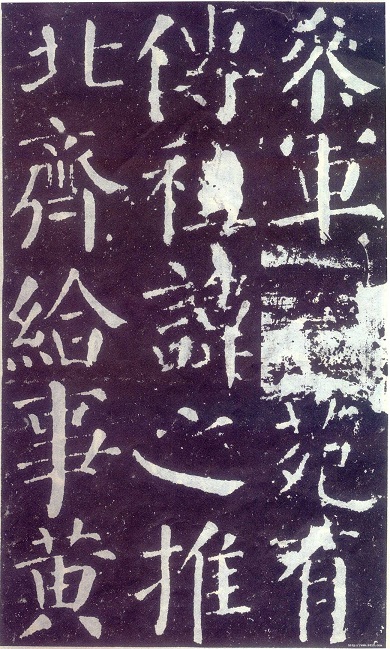 參軍苑有
傳祖諱之推
北齊給事黃